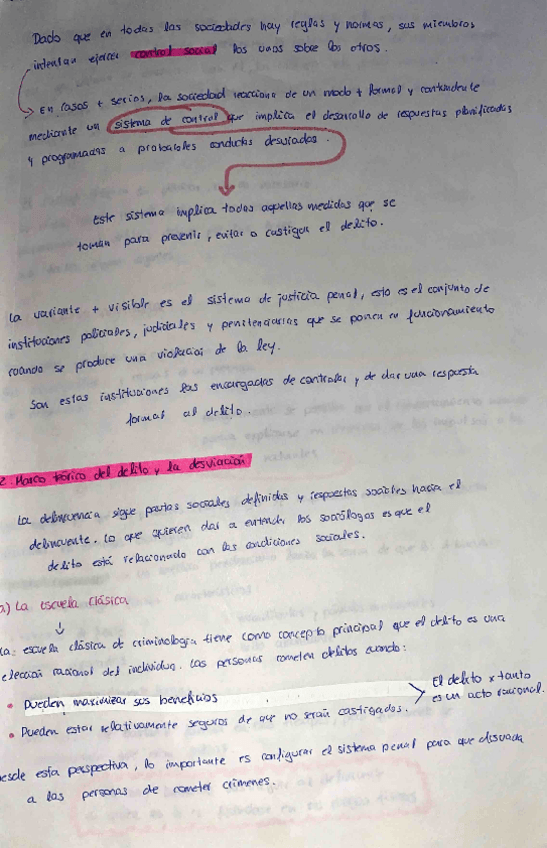 Dado que en todas las sociedades hay reglas y normas, sus miembros
intentan ejercer control social los unos sobre los otros.
En casos + serios, la sociedad reacciona de un modo + formal y contundente
mediante un sistema de control que implica el desarrollo de respuestas planificadas
y programadas a probables conductas desviadas.
Este sistema implica todas aquellas medidas que se
toman para prevenir, evitar o castigar el delito.
La variante + visible es el sistema de justicia penal, esto es el conjunto de
instituciones policiales, judiciales y penitenciarias que se ponen en funcionamiento
cuando se produce una violación de la ley.
Son estas instituciones las encargadas de controlar y de dar una respuesta
formal al delito.
2. Marco teórico del delito y la desviación
La delincuencia sigue pautas sociales definidas y respuestas sociales hacia el
delincuente. Lo que quieren dar a entender los sociólogos es que el
delito está relacionado con las condiciones sociales.
a) La escuela clásica
La escuela clásica de criminología tiene como concepto principal que el delito es una
elección racional del individuo. Las personas cometen delitos cuando:
• Pueden maximizar sus beneficios
• Pueden estar relativamente seguros de que no serán castigados.
El delito x tanto
es un acto racional.
Desde esta perspectiva, lo importante es configurar el sistema penal para que disuada
a las personas de cometer crímenes.